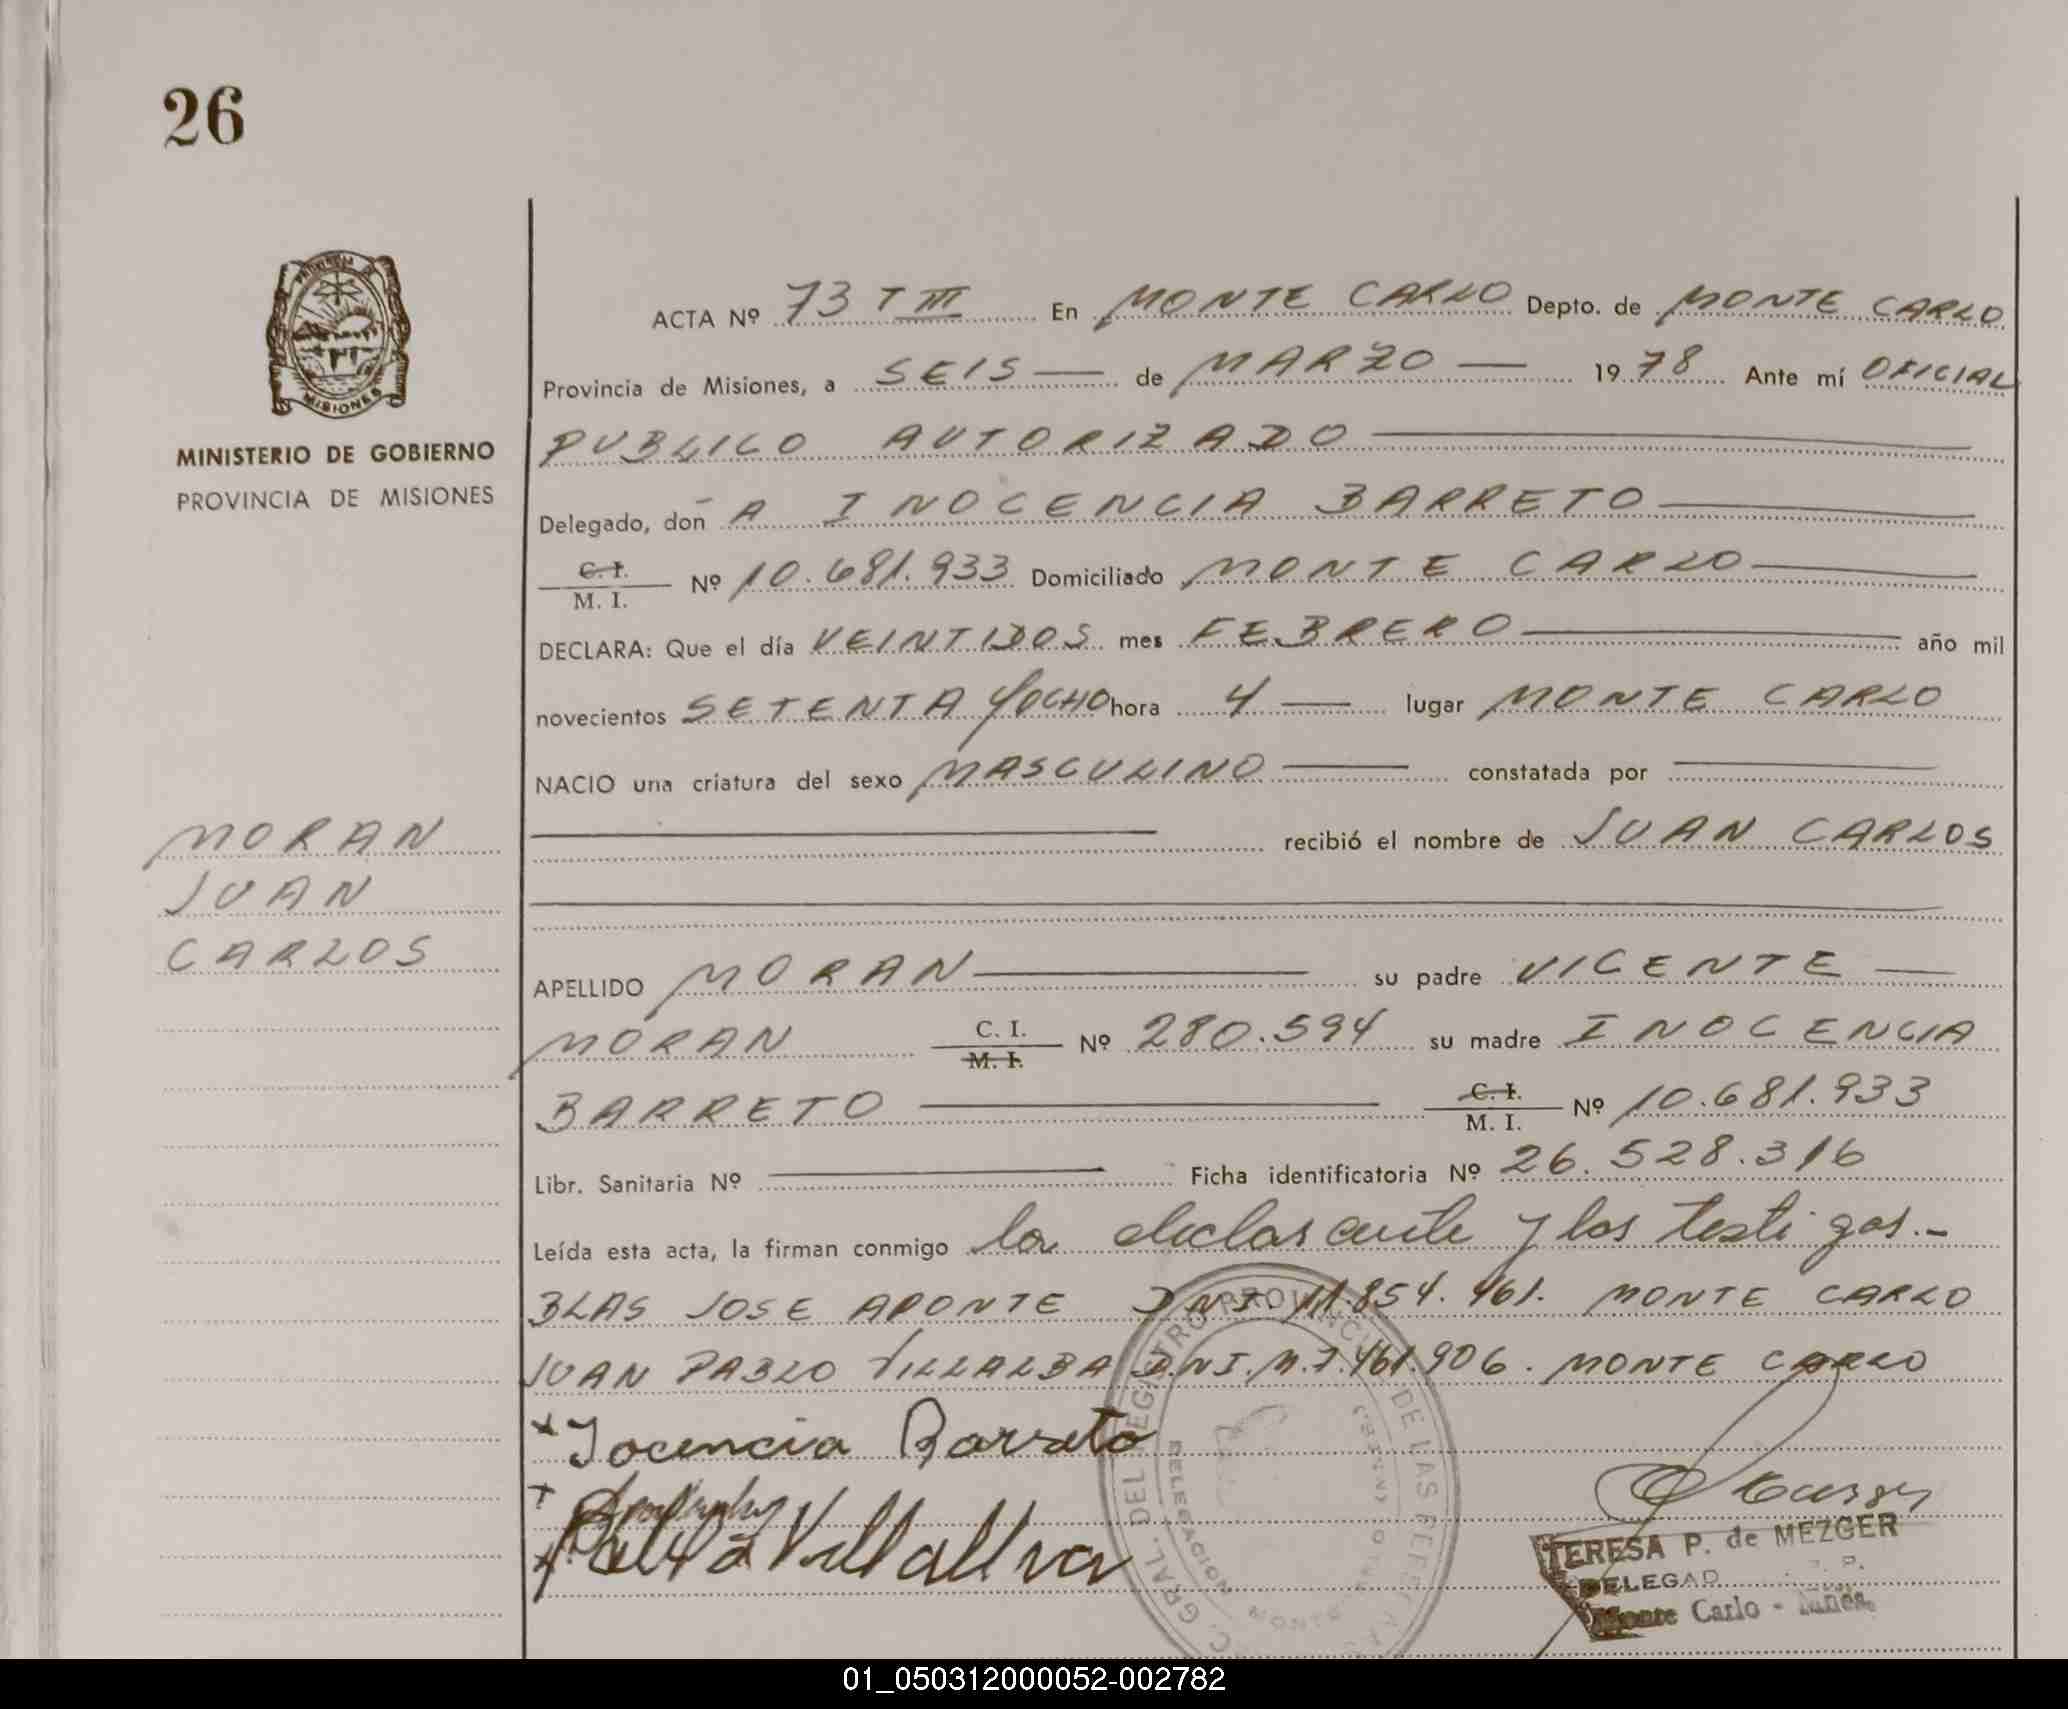 26
PROVINCIA DE
MISIONES
MINISTERIO DE GOBIERNO
PROVINCIA DE MISIONES
ACTA Nº 73 T III En MONTE CARLO Depto. de MONTE CARLO
Provincia de Misiones, a SEIS de MARZO 1978 Ante mí OFICIAL
PUBLICO AUTORIZADO
Delegado, don A INOCENCIA BARRETO
C. I.
M. I. Nº 10.681.933 Domiciliado MONTE CARLO
DECLARA: Que el día VEINTIDOS mes FEBRERO año mil
novecientos SETENTA Y OCHO hora 4 lugar MONTE CARLO
NACIO una criatura del sexo MASCULINO constatada por
recibió el nombre de JUAN CARLOS
MORAN
JUAN
CARLOS
APELLIDO MORAN su padre VICENTE
MORAN C. I.
M. I. Nº 280.594 su madre INOCENCIA
BARRETO C. I.
M. I. Nº 10.681.933
Libr. Sanitaria Nº Ficha identificatoria Nº 26.528.316
Leída esta acta, la firman conmigo la declarante y los testigos.-
BLAS JOSE APONTE D.N.I. 11.854.461. MONTE CARLO
JUAN PABLO VILLALBA D.N.I. M.7.461.906. MONTE CARLO
Iocencia Barreto
Villallva
GRAL. DEL REGISTRO PROVINCIAL DE LAS PERSONAS
DELEGACION MONTE CARLO
TERESA P. de MEZGER
DELEGAD
Monte Carlo - Mnes.
01_050312000052-002782